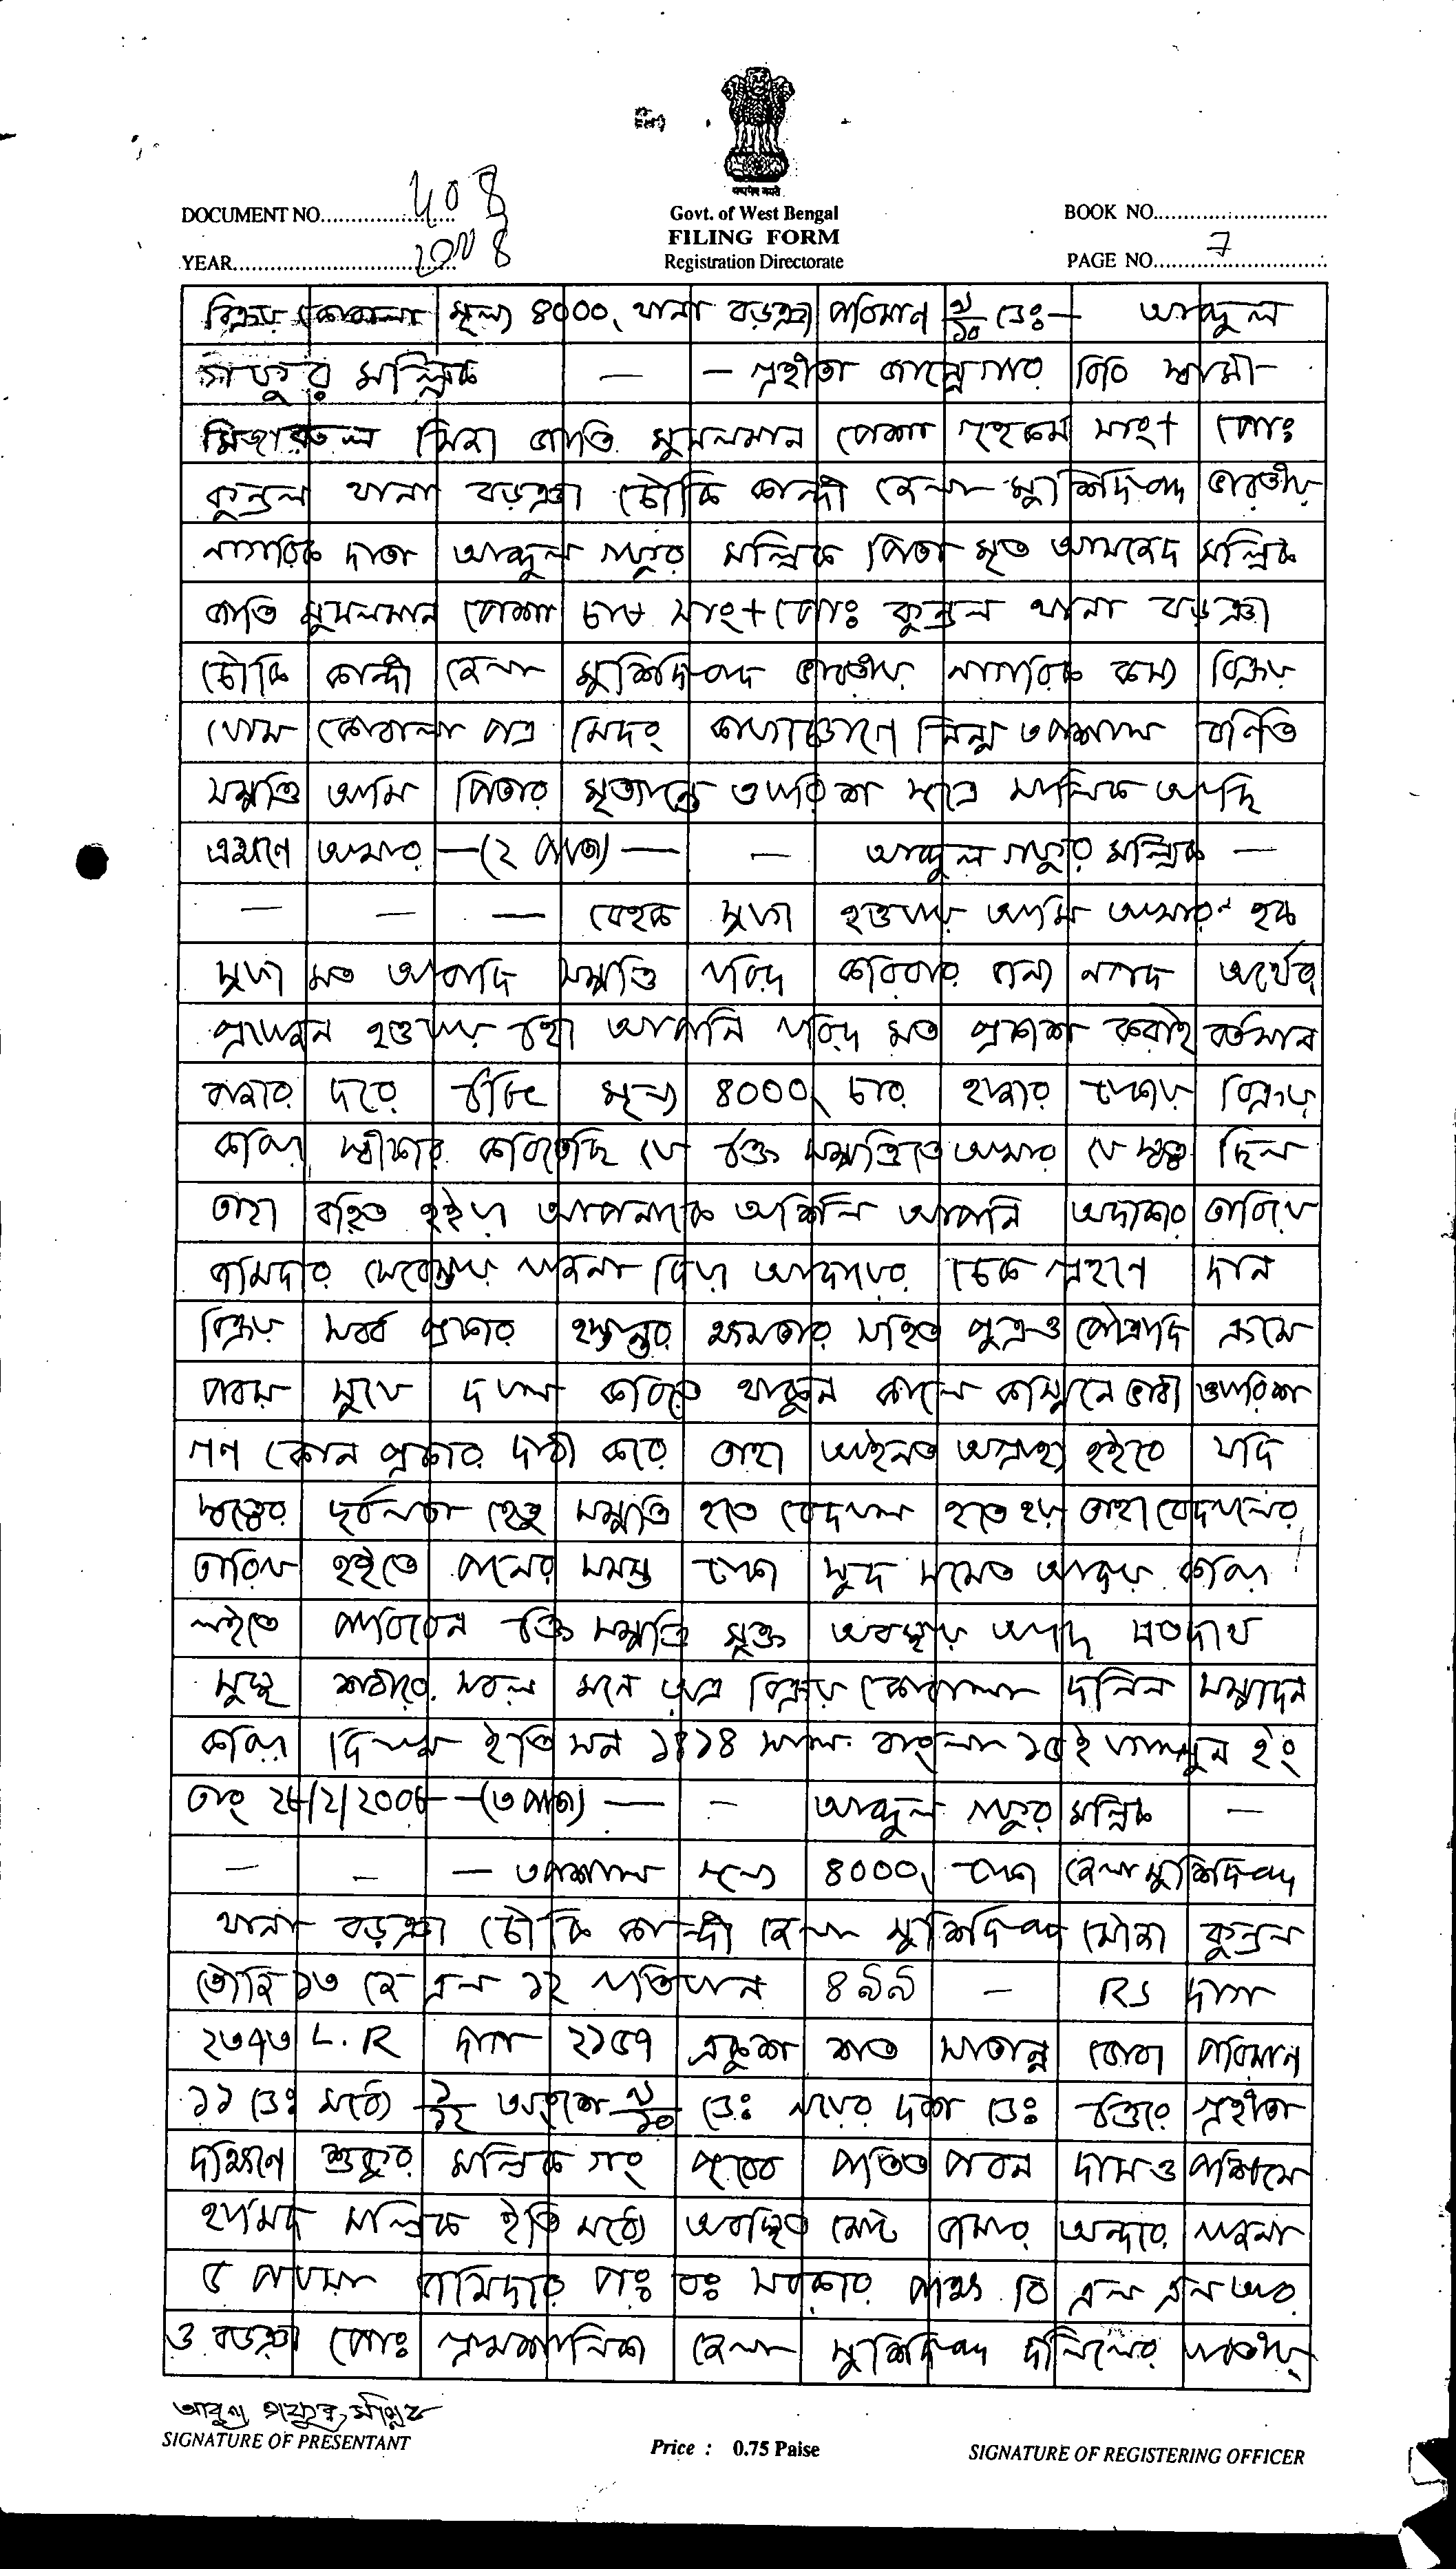 সত্যমেব জয়তে
DOCUMENT NO. 408
Govt. of West Bengal
BOOK NO.
FILING FORM
YEAR 2008
Registration Directorate
PAGE NO. 7
বিক্রয় কোবালা মূল্য ৪০০০৲ থানা বড়ঞা পরিমাণ ৯/১০ ডেঃ — আব্দুল
গফুর মল্লিক — — গ্রহীতা বিবি স্বামী
সিরাজুল জাতি মুসলমান পেশা গৃহকর্ম সাং+ পোঃ
কুন্ডল থানা বড়ঞা চৌকি কান্দী জেলা মুর্শিদাবাদ ভারতীয়
নাগরিক দাতা আব্দুল গফুর মল্লিক পিতা মৃত আমজেদ মল্লিক
জাতি মুসলমান পেশা চাষ সাং+পোঃ কুন্ডল থানা বড়ঞা
চৌকি কান্দী জেলা মুর্শিদাবাদ ভারতীয় নাগরিক কস্য বিক্রয়
খোস কোবালা পত্র মিদং কার্য্যঞ্চাগে নিম্ন তপশীল বর্ণিত
সম্পত্তি আমি পিতার মৃত্যান্তে ওয়ারিশ সূত্রে মালিক আছি
এক্ষণে আমার —(২ পাতা)— — আব্দুল গফুর মল্লিক —
— — — বেহক সুবা হওয়ায় আমি আমার হক
সুবা মত আবাদি সম্পত্তি খরিদ করিবার জন্য নগদ অর্থের
প্রয়োজন হওয়ায় উহা আপনি খরিদ মত প্রকাশ করায় বর্তমান
বাজার দরে উচিত মূল্য ৪০০০৲ চার হাজার টাকায় বিক্রয়
করিয়া স্বীকার করিতেছি যে উক্ত সম্পত্তিতে আমার যে স্বত্ব ছিল
তাহা রহিত হইয়া আপনাকে অর্শিল আপনি অদ্যকার তারিখে
জমিদার সেরেস্তায় খাজনা দিয়া আদায়ের চেক গ্রহণে দান
বিক্রয় সর্ব্ব প্রকার হস্তান্তর ক্ষমতার সহিত পুত্র ও পৌত্রাদি ক্রমে
পরম সুখে দখল করিতে থাকুন কালে কস্মিনে ভাবী ওয়ারিশ
গণ কোন প্রকার দাবী করে তাহা আইনত অগ্রাহ্য হইবে যদি
স্বত্বের দুর্বলতা হেতু সম্পত্তি হতে বেদখল হতে হয় তাহা বেদখলের
তারিখ হইতে পনের সমস্ত টাকা সুদ সমেত আদায় করিয়া
লইতে পারিবেন উক্ত সম্পত্তি মুক্ত অবস্থায় আছে এতদার্থে
সুস্থ শরীরে সরল মনে অত্র বিক্রয় কোবালা দলিল সম্পাদন
করিয়া দিলাম ইতি সন ১৪১৪ সাল বাংলা ১৫ই ফাল্গুন ইং
তাং 28/2/2008 —(৩ পাতা)— — আব্দুল গফুর মল্লিক —
— — — তপশীল মূল্য ৪০০০৲ টাকা জেলা মুর্শিদাবাদ
থানা বড়ঞা চৌকি কান্দী জেলা মুর্শিদাবাদ মৌজা কুন্ডল
তৌজি ১৩ জে এল ১২ খতিয়ান ৪৯৯ — RS দাগ
২৩৭৩ L.R দাগ ২১৫৭ একুশ শত সাতান্ন ডোবা পরিমাণ
১১ ডেঃ মধ্যে ১/১২ অংশে ৯/১০ ডেঃ নয়ের দশ ডেঃ উত্তরে গ্রহীতা
দক্ষিণে শুকুর মল্লিক গং পূর্ব্বে পতিত পাবন দাস ও পশ্চিমে
মল্লিক ইতি মধ্যে অবস্থিত মোট জমার অন্দরে খাজনা
৫ পয়সা জমিদার পঃ বঃ সরকার পক্ষে বি এল এল আর
ও বড়ঞা পোঃ গ্রামশালিকা জেলা মুর্শিদাবাদ দলিলের
আব্দুল গফুর মল্লিক
SIGNATURE OF PRESENTANT
Price : 0.75 Paise
SIGNATURE OF REGISTERING OFFICER